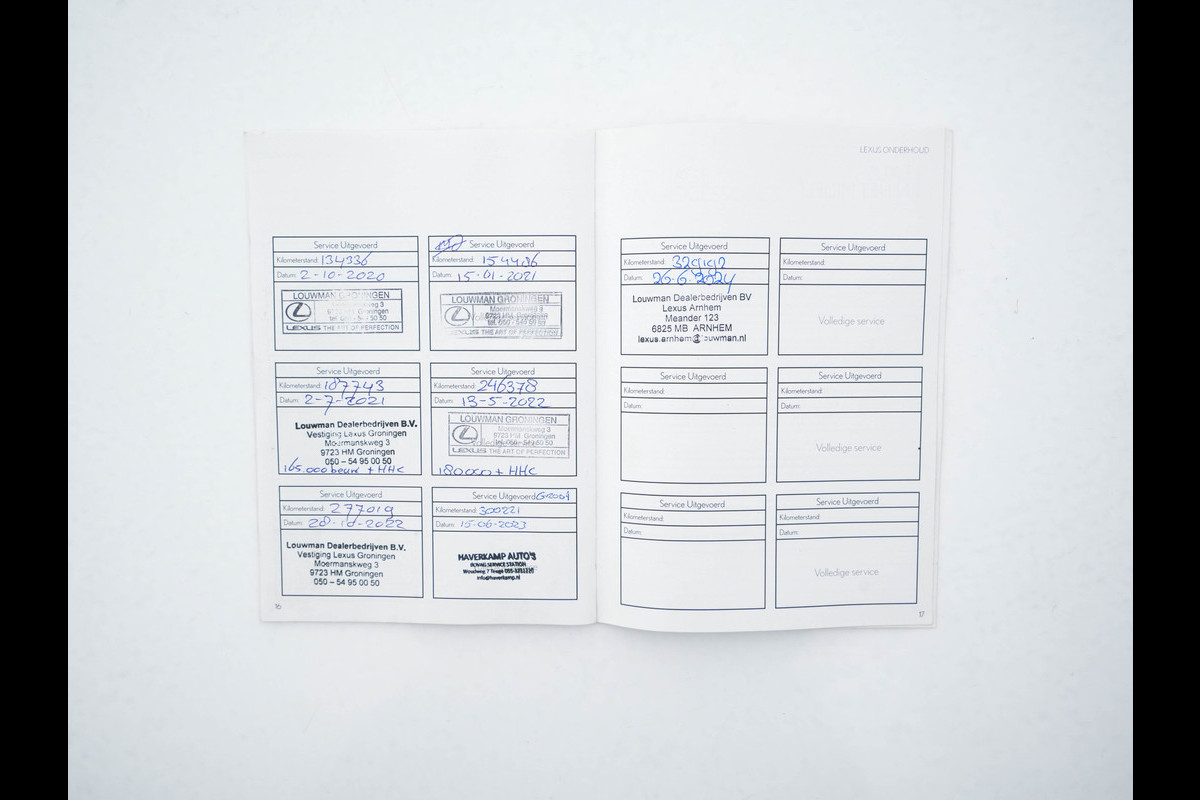 LEXUS ONDERHOUD
Service Uitgevoerd
Kilometerstand: 134336
Datum: 2-10-2020
LOUWMAN GRONINGEN
LEXUS THE ART OF PERFECTION
Service Uitgevoerd
Kilometerstand: 154486
Datum: 15-01-2021
LOUWMAN GRONINGEN
Moermanskweg 3
9723 HM Groningen
tel. 050 - 549 50 50
LEXUS THE ART OF PERFECTION
Service Uitgevoerd
Kilometerstand: 187743
Datum: 2-7-2021
Louwman Dealerbedrijven B.V.
Vestiging Lexus Groningen
Moermanskweg 3
9723 HM Groningen
050 – 54 95 00 50
165.000 beurt + HHC
Service Uitgevoerd
Kilometerstand: 246378
Datum: 13-5-2022
LOUWMAN GRONINGEN
Moermanskweg 3
9723 HM Groningen
LEXUS THE ART OF PERFECTION
180000 + HHC
Service Uitgevoerd
Kilometerstand: 277019
Datum: 28-10-2022
Louwman Dealerbedrijven B.V.
Vestiging Lexus Groningen
Moermanskweg 3
9723 HM Groningen
050 – 54 95 00 50
Service Uitgevoerd
Kilometerstand: 300221
Datum: 15-06-2023
HAVERKAMP AUTO'S
BOVAG SERVICE STATION
info@haverkamp.nl
16
Service Uitgevoerd
Kilometerstand: 329192
Datum: 26-6-2024
Louwman Dealerbedrijven BV
Lexus Arnhem
Meander 123
6825 MB ARNHEM
lexus.arnhem@louwman.nl
Service Uitgevoerd
Kilometerstand:
Datum:
Volledige service
Service Uitgevoerd
Kilometerstand:
Datum:
Service Uitgevoerd
Kilometerstand:
Datum:
Volledige service
Service Uitgevoerd
Kilometerstand:
Datum:
Service Uitgevoerd
Kilometerstand:
Datum:
Volledige service
17